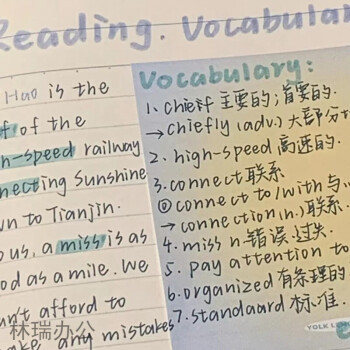 Reading. Vocabular
Hao is the
f of the
h-speed railway
necting Sunshine
wn to Tianjin.
o us, a miss is as
od as a mile. We
n't afford to
ake any mistakes
Vocabulary:
1. chief 主要的;首要的.
→chiefly (adv.) 大部分地
2. high-speed 高速的.
3. connect 联系
◎connect to/with 与...
→connection (n.) 联系.
4. miss n. 错误.过失.
5. pay attention to
6. organized 有条理的
7. standaard 标准.
林瑞办公
YOLK L